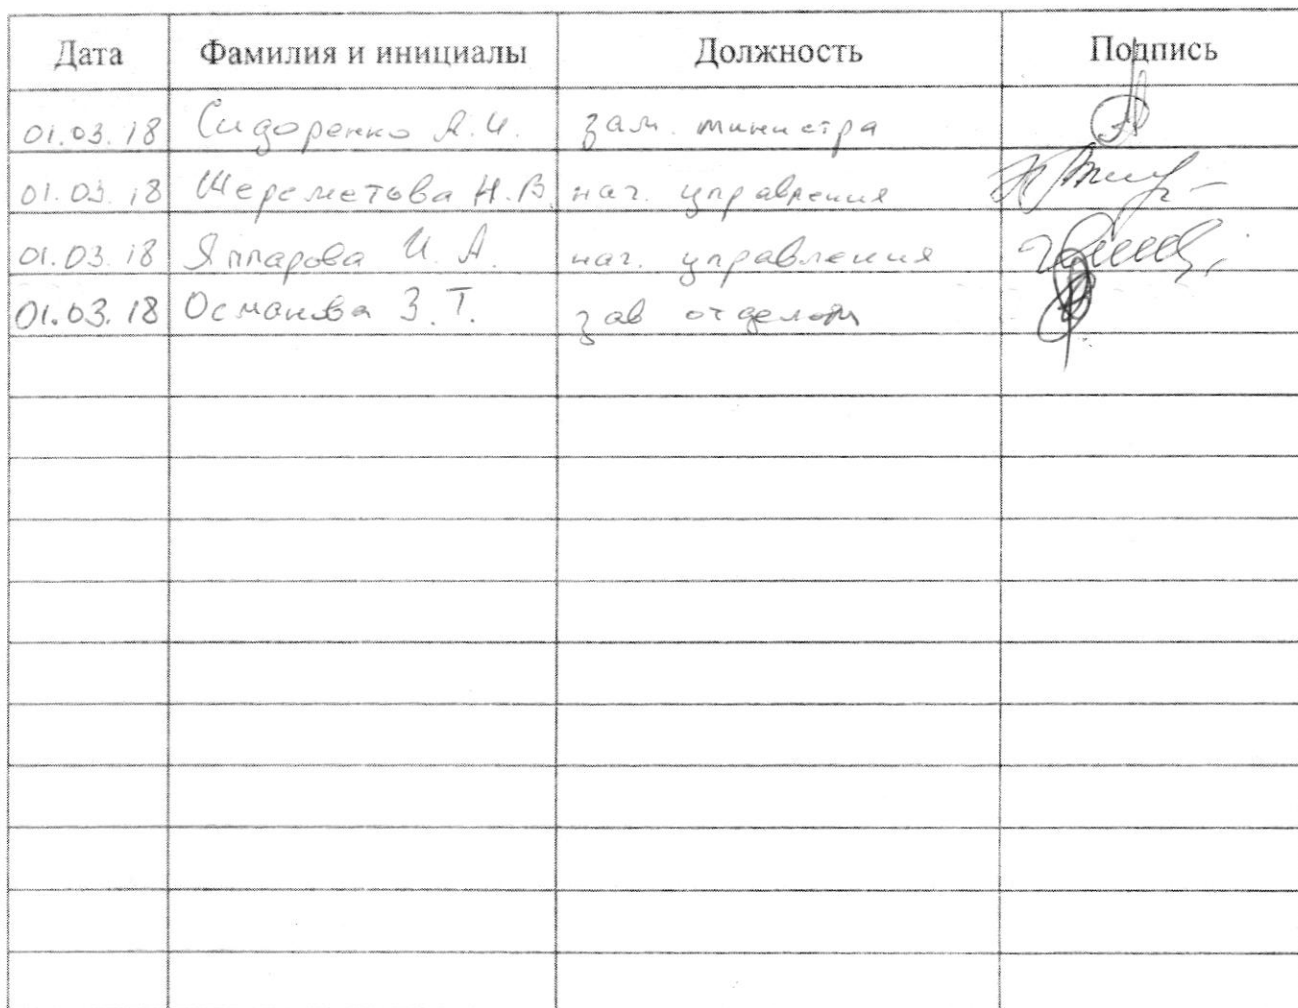 Дата Фамилия и инициалы Должность Подпись
01.03.18 Сидоренко А.И. зам. министра
01.03.18 Шереметова Н.В. нач. управления
01.03.18 Яппарова И. А. нач. управления
01.03.18 Османова З. Т. зав отделом